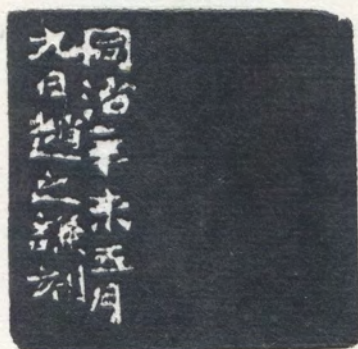 同治辛未五月
九日趙之謙刻